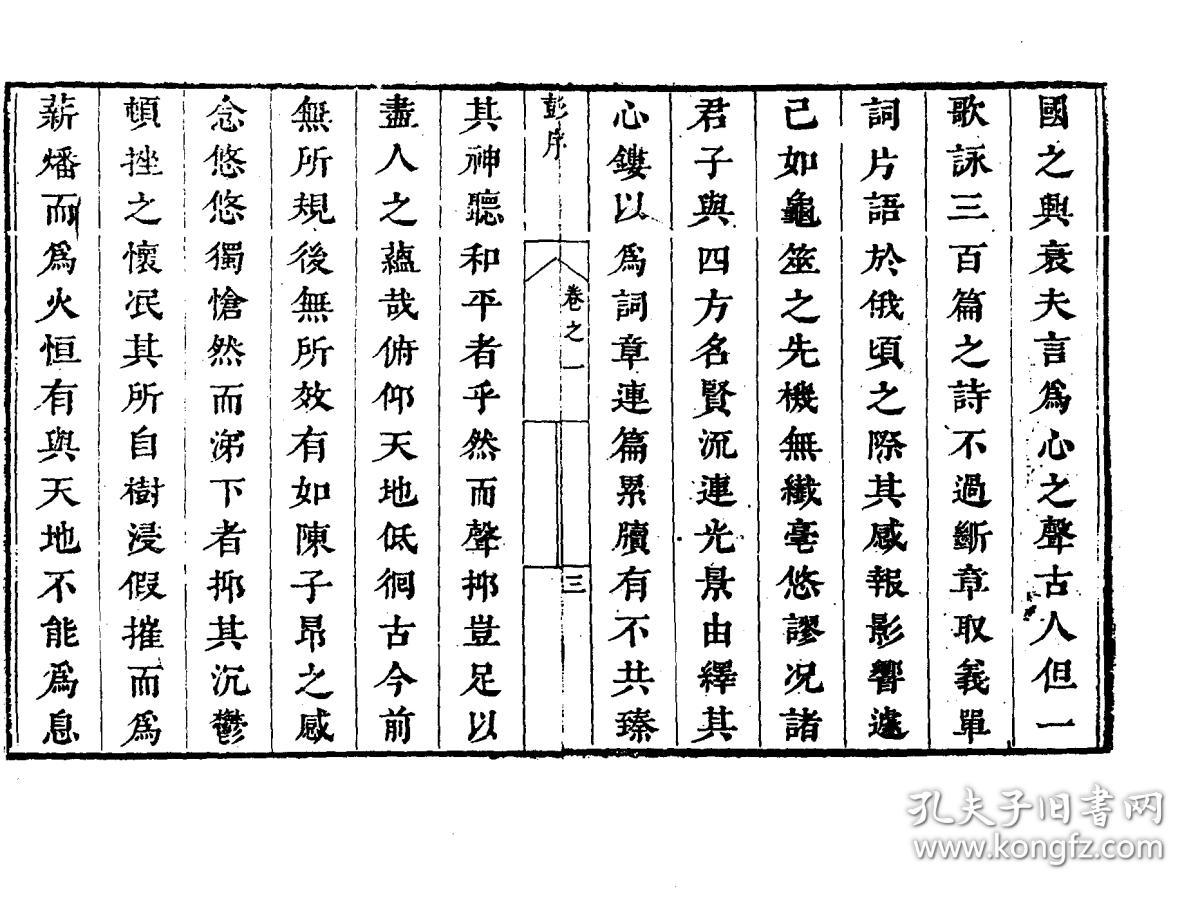 國之興衰夫言爲心之聲古人但一
歌詠三百篇之詩不過斷章取義單
詞片語於俄頃之際其感報影響遽
已如龜筮之先機無纖毫悠謬况諸
君子與四方名賢流連光景由繹其
心鏤以爲詞章連篇累牘有不共臻
彭序
卷之一
三
其神聽和平者乎然而聲抑豈足以
盡人之蘊哉俯仰天地低徊古今前
無所規後無所效有如陳子昂之感
念悠悠獨愴然而涕下者抑其沉鬱
頓挫之懷冺其所自樹浸假摧而爲
薪燔而爲火恒有與天地不能爲息
孔夫子旧书网
www.kongfz.com